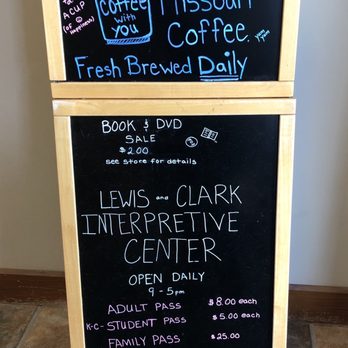 A CUP
(of ☺
happiness)
coffee
with
you
Missouri
Coffee.
Fresh Brewed Daily
BOOK & DVD
SALE
$2.00
see store for details
LEWIS and CLARK
INTERPRETIVE
CENTER
OPEN DAILY
9-5pm
ADULT PASS $8.00 each
K-C- STUDENT PASS $5.00 each
FAMILY PASS $25.00